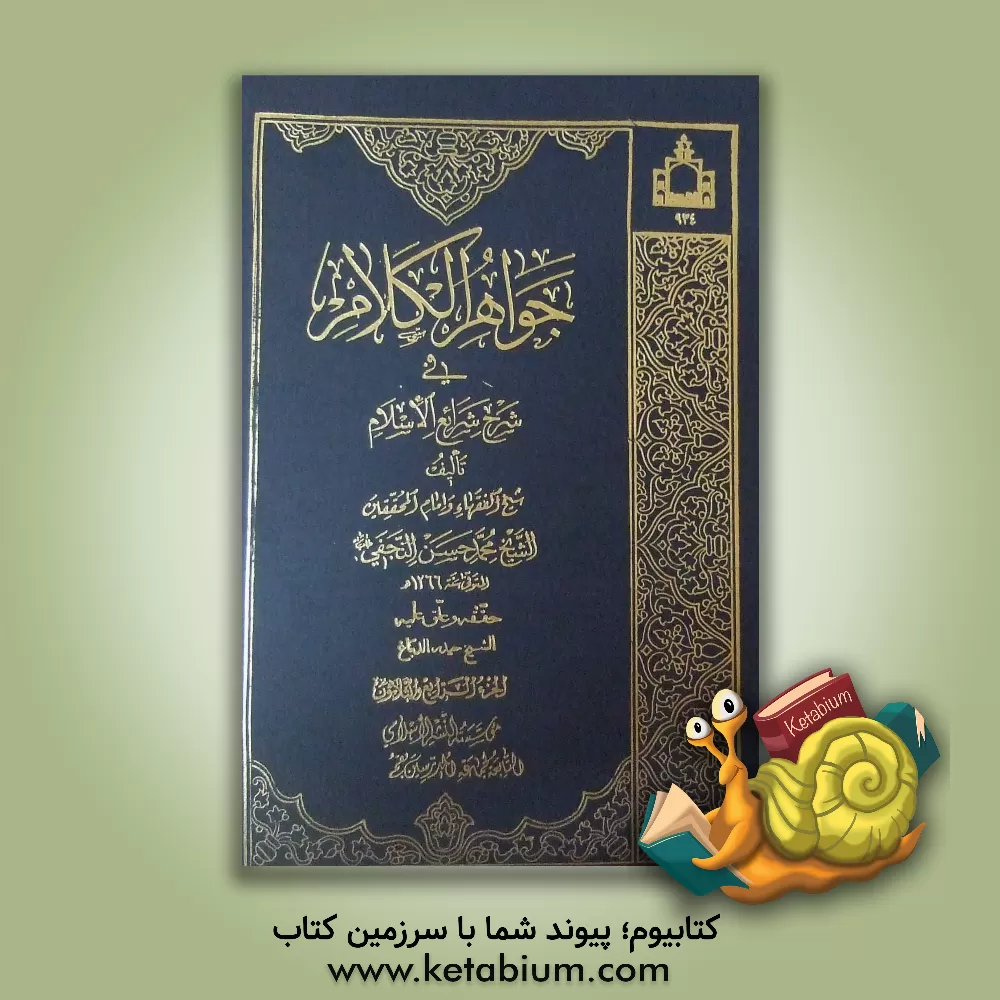 ٩٣٤
جَوَاهِرُ الْكَلَامِ
في
شَرْحِ شَرَائِعِ الْإِسْلَامِ
تَأْلِيفُ
شيخ الفقهاء وإمام المحققين
الشَّيْخ مُحَمَّد حَسَن النَّجَفِي
المتوفى سنة ١٢٦٦ه
حققه وعلق عليه
الشيخ حيدر الدباغ
الجزء الرابع والثلاثون
مؤسسة النشر الإسلامي
التابعة لجماعة المدرسين بقم
Ketabium
کتابیوم؛ پیوند شما با سرزمین کتاب
www.ketabium.com